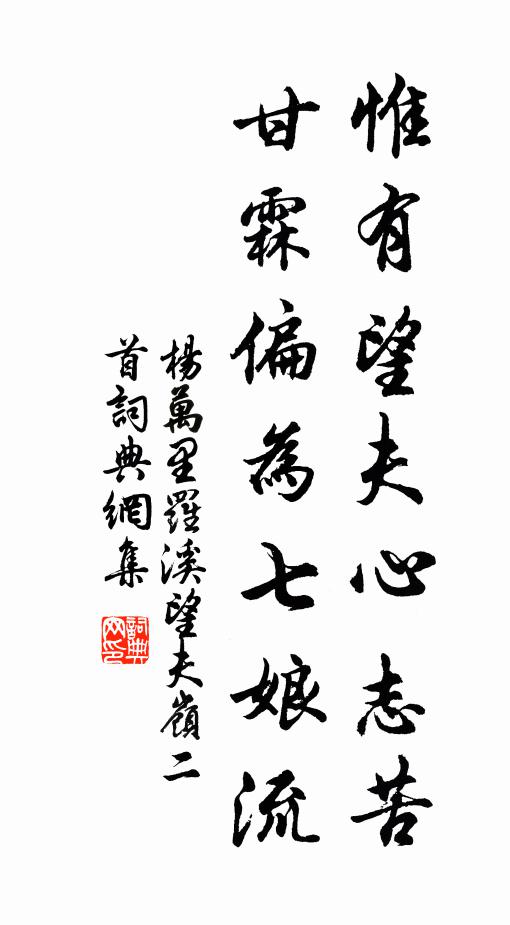 惟有望夫心志苦
甘霖偏為七娘流
楊萬里羅溪望夫嶺二
首詞典網集
詞典网印